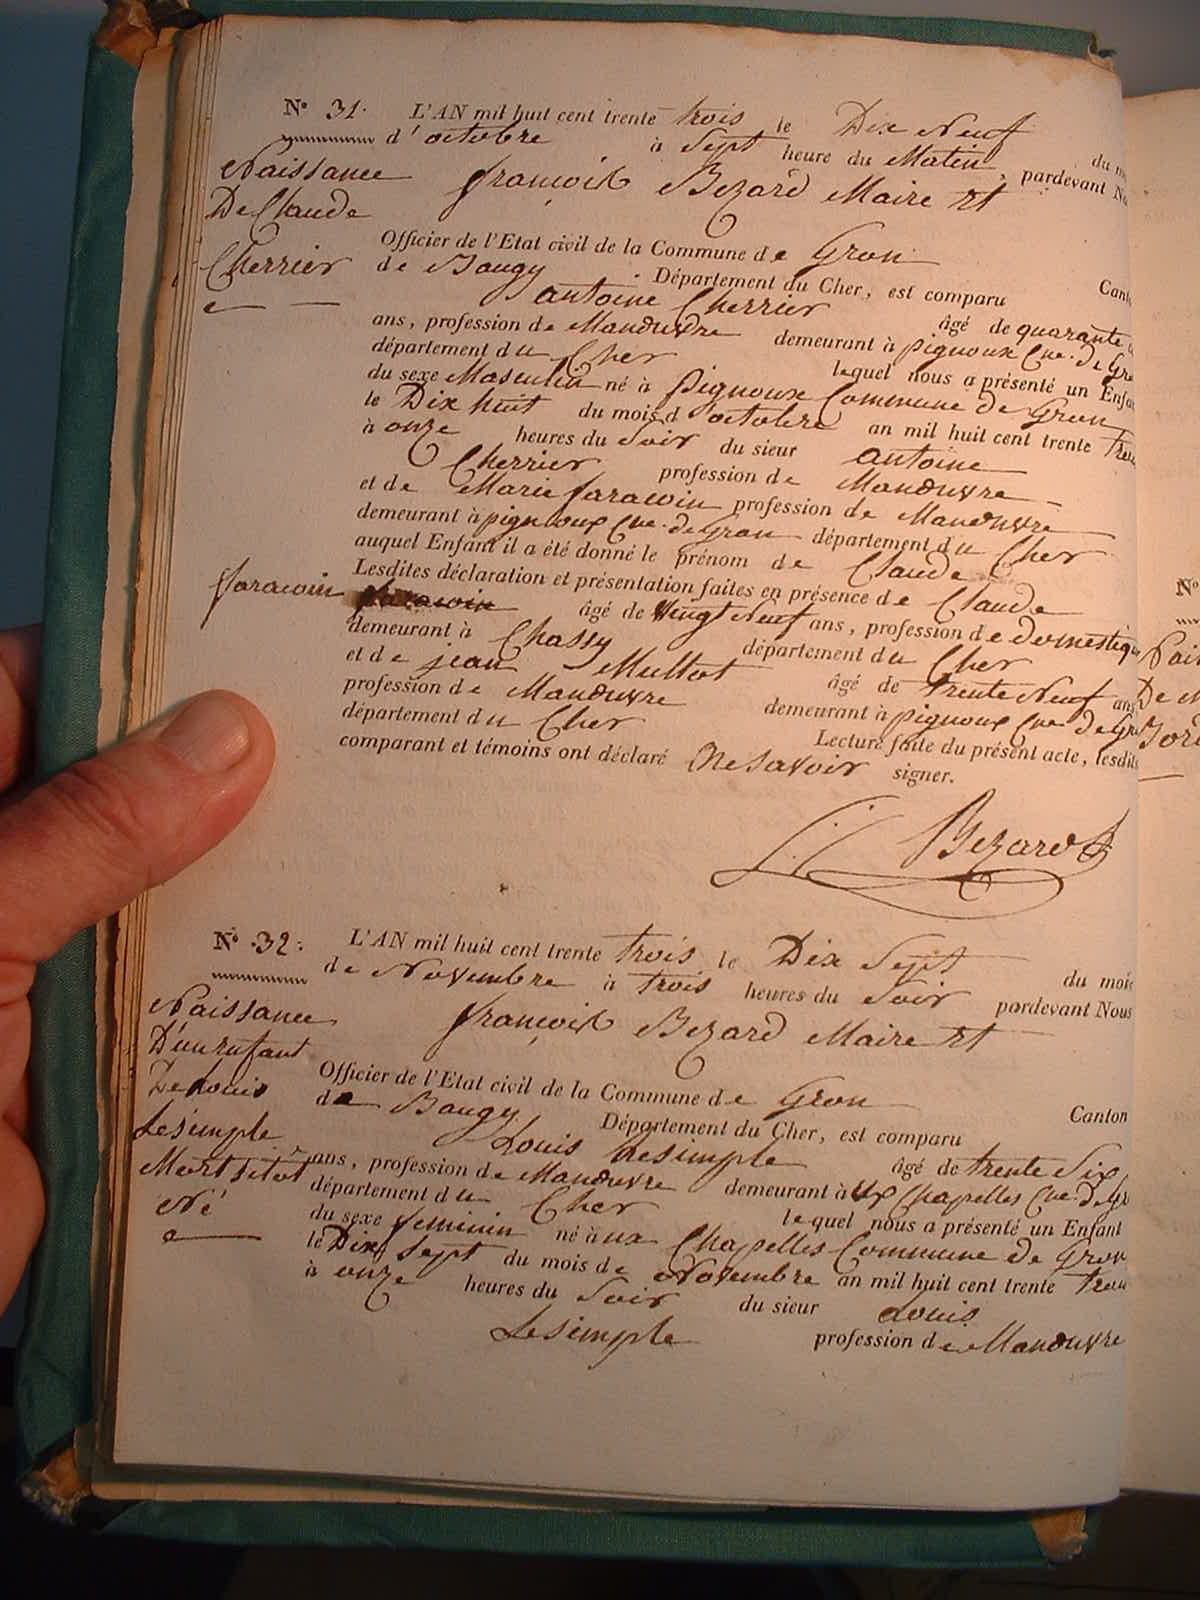 N° 31. L'AN mil huit cent trente trois le Dix Neuf du
d'octobre à Sept heure du Matin, pardevant
Naissance
De Claude
Cherrier
françois Bezard Maire Et
Officier de l'Etat civil de la Commune de Gron
de Baugy Département du Cher, est comparu
antoine Cherrier âgé de quarante
ans, profession de Manœuvre demeurant à pignoux Cne. de
département du Cher lequel nous a présenté un
du sexe Masculin né à Pignoux Commune de Gron
le Dix huit du mois d'octobre an mil huit cent trente
à onze heures du Soir du sieur antoine
Cherrier profession de Manœuvre
et de Marie farawin profession de Manœuvre
demeurant à pignoux Cne. de Gron département du Cher
auquel Enfant il a été donné le prénom de Claude
Lesdites déclaration et présentation faites en présence de Claude
farawin farawin âgé de Vingt Neuf ans, profession de domestique
demeurant à Chassy département du Cher
et de jean Mullot âgé de trente Neuf ans
profession de Manœuvre demeurant à pignoux Cne de
département du Cher Lecture faite du présent acte, lesdits
comparant et témoins ont déclaré Ne Savoir signer.
Bezard
N° 32. L'AN mil huit cent trente trois le Dix Sept du mois
de Novembre à trois heures du Soir pardevant Nous
Naissance
D'un Enfant
De Louis
Lesimple
Mort sitot
Né
françois Bezard Maire Et
Officier de l'Etat civil de la Commune de Gron
de Baugy Département du Cher, est comparu Canton
Louis Lesimple âgé de trente Six
ans, profession de Manœuvre demeurant à ux Chapelles Cne. de
département du Cher lequel nous a présenté un Enfant
du sexe feminin né à ux Chapelles Commune de Gron
le Dix Sept du mois de Novembre an mil huit cent trente
à onze heures du Soir du sieur Louis
Lesimple profession de Manœuvre
N°